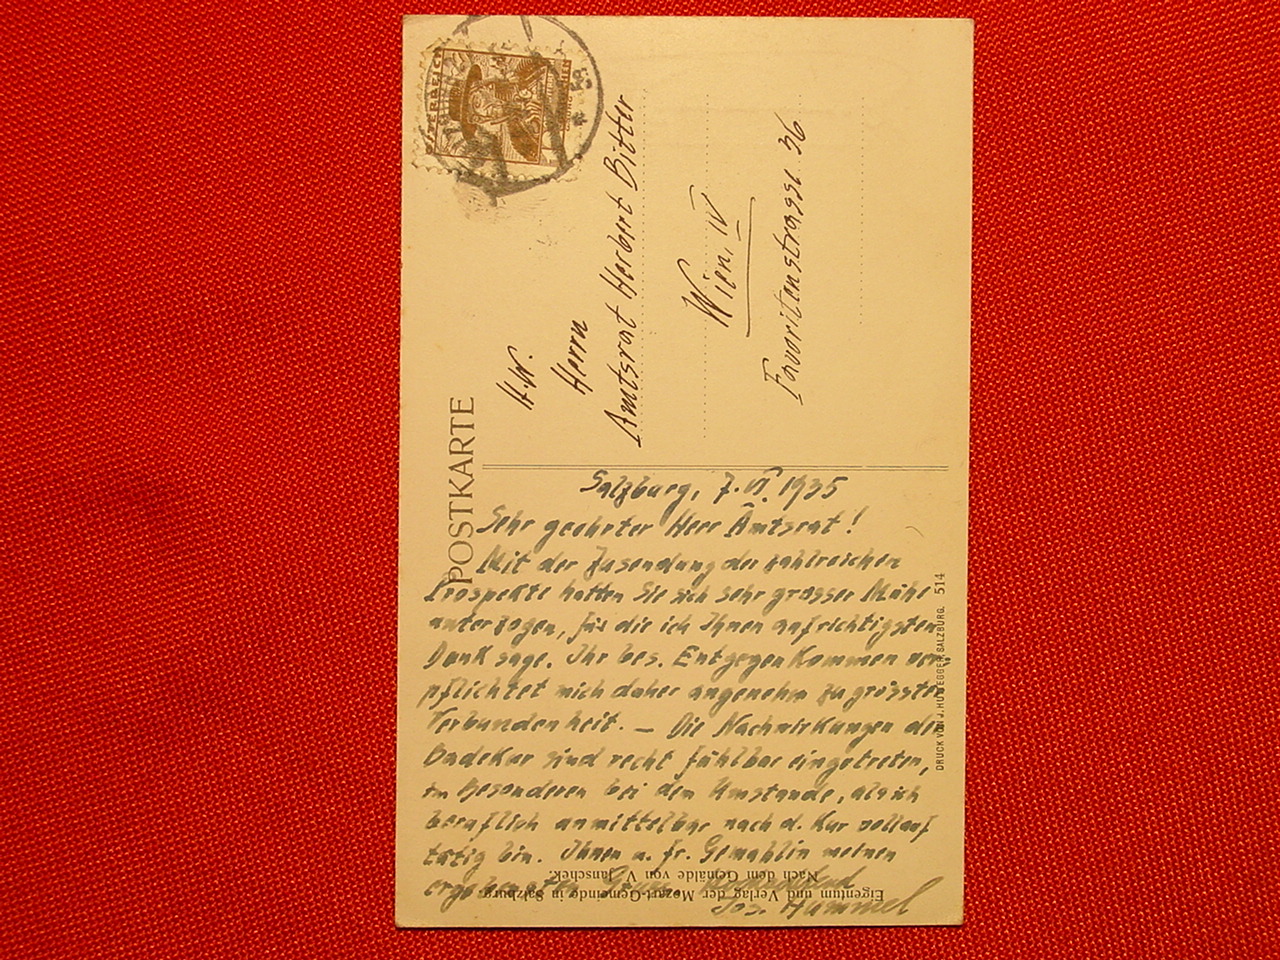 POSTKARTE
ÖSTERREICH
H.W.
Herrn
Amtsrat Herbert Bitter
Wien, IV
Favoritenstrasse 36
Salzburg, 7. VI. 1935
Sehr geehrter Herr Amtsrat!
Mit der Zusendung der zahlreichen
Prospekte hatten Sie sich sehr grosser Mühe
unterzogen, für die ich Ihnen aufrichtigsten
Dank sage. Ihr bes. Entgegenkommen ver-
pflichtet mich daher angenehm zu grösster
Verbundenheit. — Die Nachwirkungen der
Badekur sind recht fühlbar eingetreten,
im Besonderen bei dem Umstande, als ich
beruflich unmittelbar nach d. Kur vollauf
tätig bin. Ihnen u. Fr. Gemahlin meinen
ergebensten
Jos. Hummel
DRUCK VON J. HUTTEGGER, SALZBURG. 514
Eigentum und Verlag der Mozart-Gemeinde in Salzburg.
Nach dem Gemälde von V. Janschek.